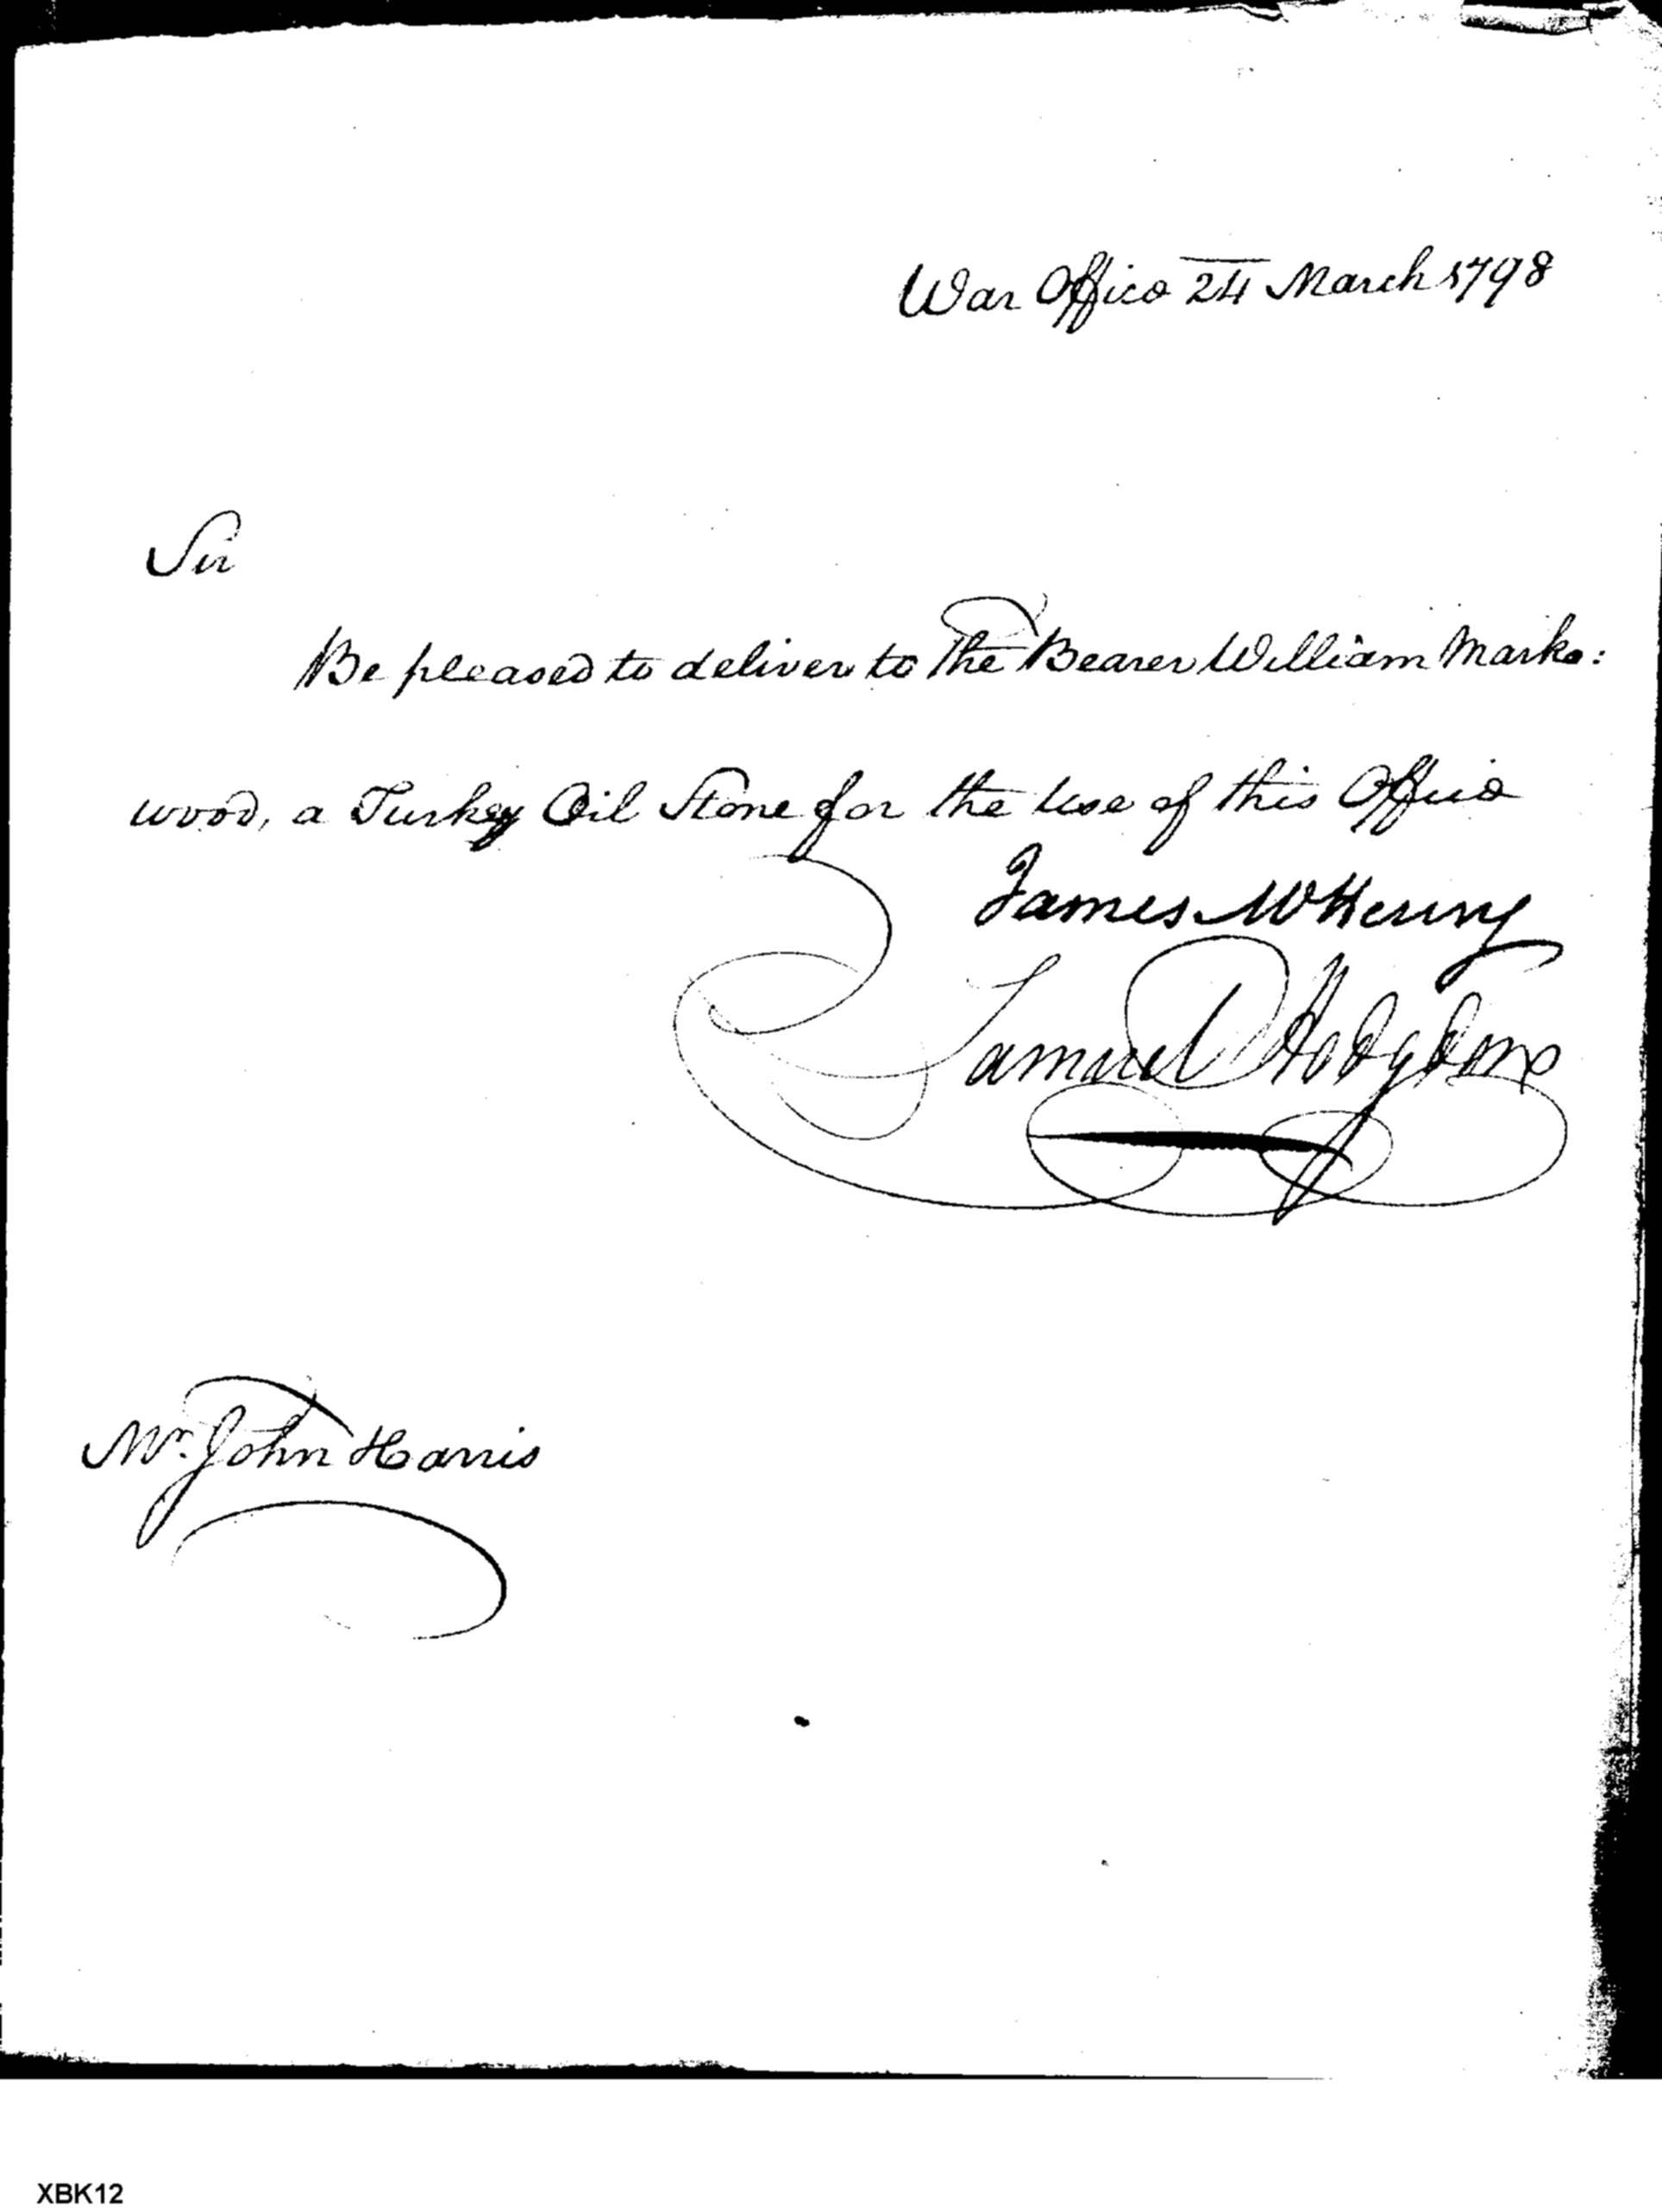 War Office 24 March 1798
Sir
Be pleased to deliver to the Bearer William Marks:
wood, a Turkey Oil Stone for the use of this Office
James McHenry
Samuel Hodgdon
Mr. John Harris
XBK12